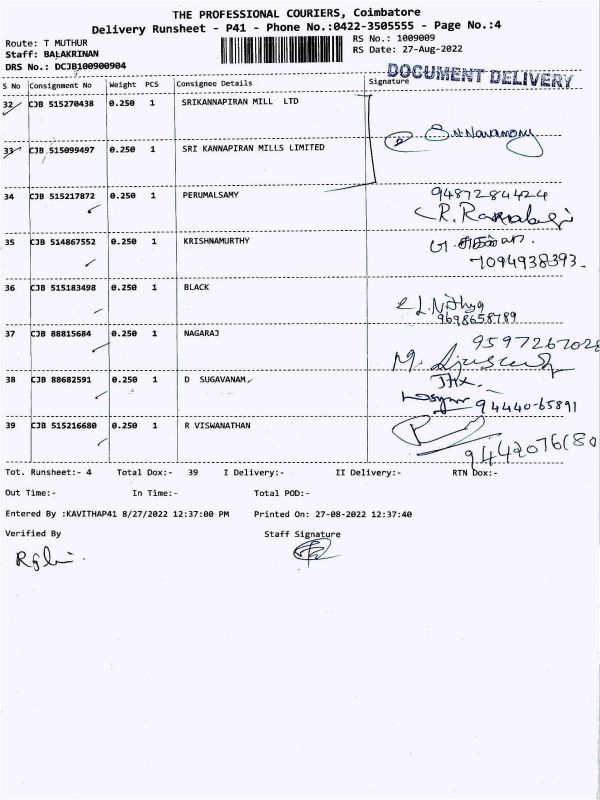 THE PROFESSIONAL COURIERS, Coimbatore
Delivery Runsheet - P41 - Phone No.:0422-3505555 - Page No.:4
Route: T MUTHUR
RS No.: 1009009
Staff: BALAKRINAN
RS Date: 27-Aug-2022
DRS No.: DCJB100900904
DOCUMENT DELIVERY
S No Consignment No Weight PCS Consignee Details Signature
32 CJB 515270438 0.250 1 SRIKANNAPIRAN MILL LTD
33 CJB 515099497 0.250 1 SRI KANNAPIRAN MILLS LIMITED
34 CJB 515217872 0.250 1 PERUMALSAMY 9487284424
35 CJB 514867552 0.250 1 KRISHNAMURTHY
7094938393.
36 CJB 515183498 0.250 1 BLACK
L. Nithya
9698658789
37 CJB 88815684 0.250 1 NAGARAJ 9597267028
38 CJB 88682591 0.250 1 D SUGAVANAM
94440-65891
39 CJB 515216680 0.250 1 R VISWANATHAN
Tot. Runsheet:- 4 Total Dox:- 39 I Delivery:- II Delivery:- RTN Dox:-
Out Time:- In Time:- Total POD:-
Entered By :KAVITHAP41 8/27/2022 12:37:00 PM Printed On: 27-08-2022 12:37:40
Verified By Staff Signature